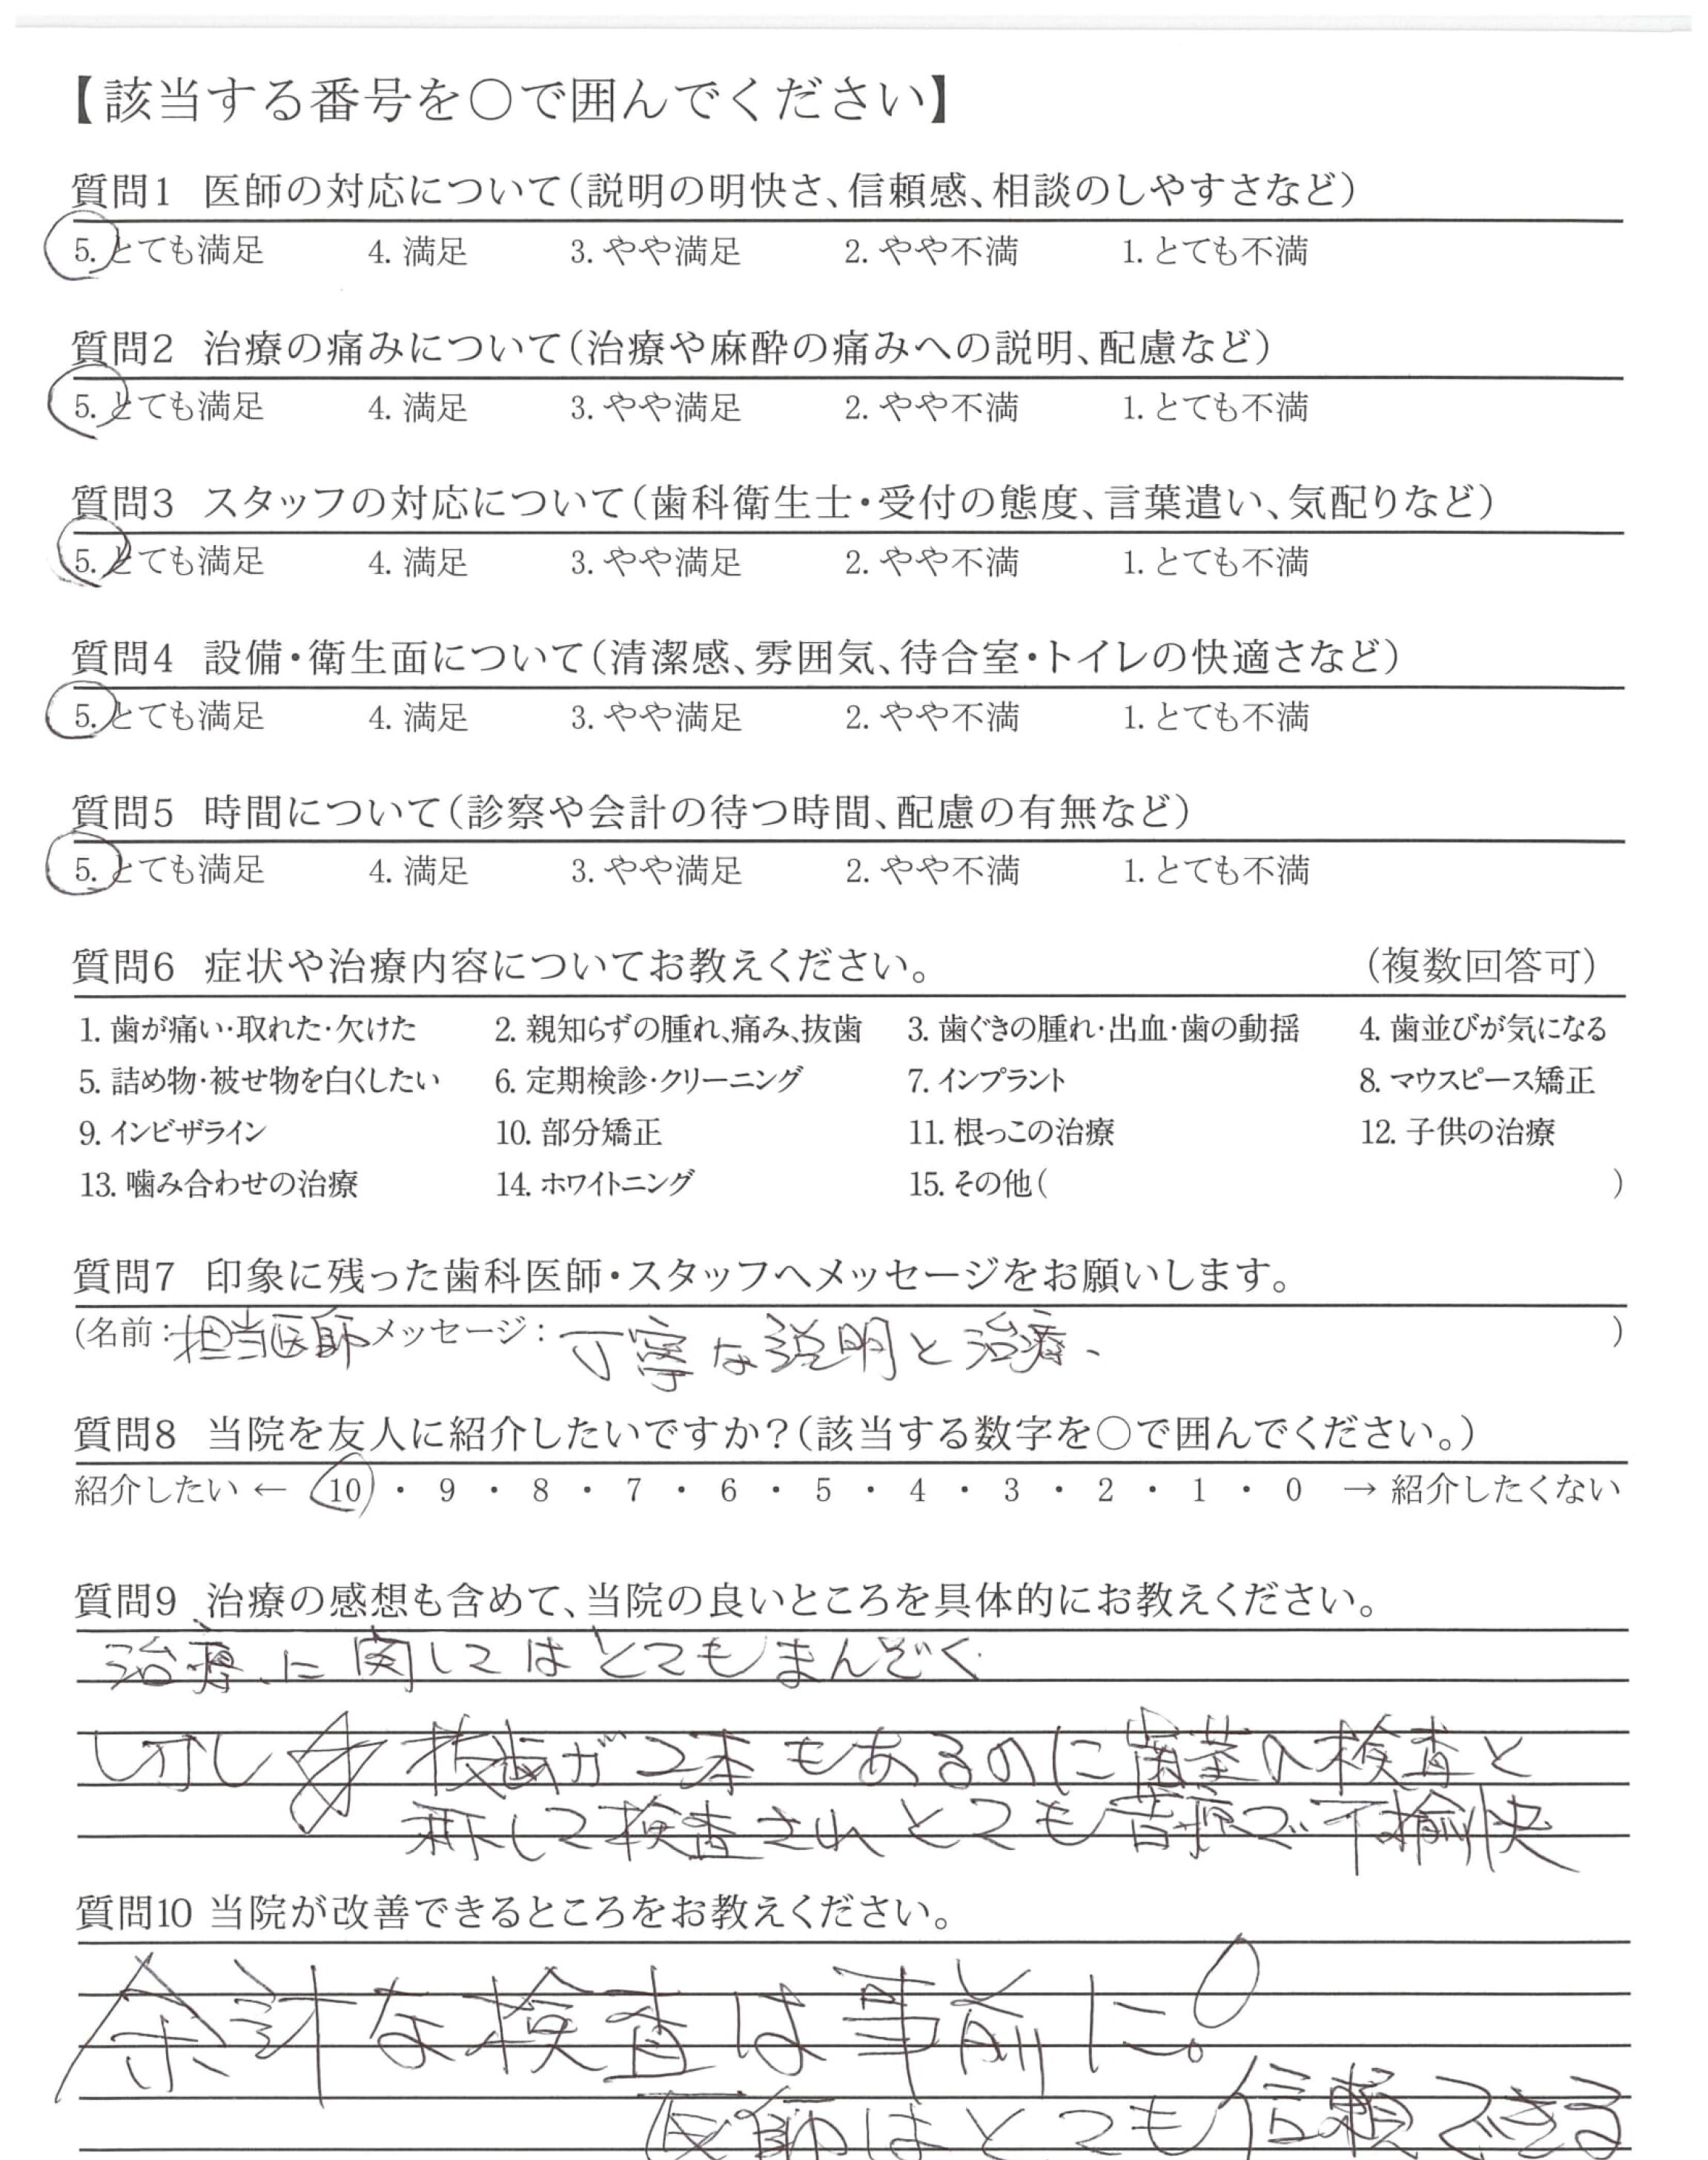 【該当する番号を○で囲んでください】
質問1 医師の対応について(説明の明快さ、信頼感、相談のしやすさなど)
5. とても満足 4. 満足 3. やや満足 2. やや不満 1. とても不満
質問2 治療の痛みについて(治療や麻酔の痛みへの説明、配慮など)
5. とても満足 4. 満足 3. やや満足 2. やや不満 1. とても不満
質問3 スタッフの対応について(歯科衛生士・受付の態度、言葉遣い、気配りなど)
5. とても満足 4. 満足 3. やや満足 2. やや不満 1. とても不満
質問4 設備・衛生面について(清潔感、雰囲気、待合室・トイレの快適さなど)
5. とても満足 4. 満足 3. やや満足 2. やや不満 1. とても不満
質問5 時間について(診察や会計の待つ時間、配慮の有無など)
5. とても満足 4. 満足 3. やや満足 2. やや不満 1. とても不満
質問6 症状や治療内容についてお教えください。 (複数回答可)
1. 歯が痛い・取れた・欠けた 2. 親知らずの腫れ、痛み、抜歯 3. 歯ぐきの腫れ・出血・歯の動揺 4. 歯並びが気になる
5. 詰め物・被せ物を白くしたい 6. 定期検診・クリーニング 7. インプラント 8. マウスピース矯正
9. インビザライン 10. 部分矯正 11. 根っこの治療 12. 子供の治療
13. 噛み合わせの治療 14. ホワイトニング 15. その他( )
質問7 印象に残った歯科医師・スタッフへメッセージをお願いします。
(名前:担当医師 メッセージ: 丁寧な説明と治療、 )
質問8 当院を友人に紹介したいですか?(該当する数字を○で囲んでください。)
紹介したい ← 10 ・ 9 ・ 8 ・ 7 ・ 6 ・ 5 ・ 4 ・ 3 ・ 2 ・ 1 ・ 0 → 紹介したくない
質問9 治療の感想も含めて、当院の良いところを具体的にお教えください。
治療に関してはとてもまんぞく
しかし 抜歯が2本もあるのに 検査と
称して検査されとても苦痛で不愉快
質問10 当院が改善できるところをお教えください。
余計な検査は事前に。
医師はとても信頼できる